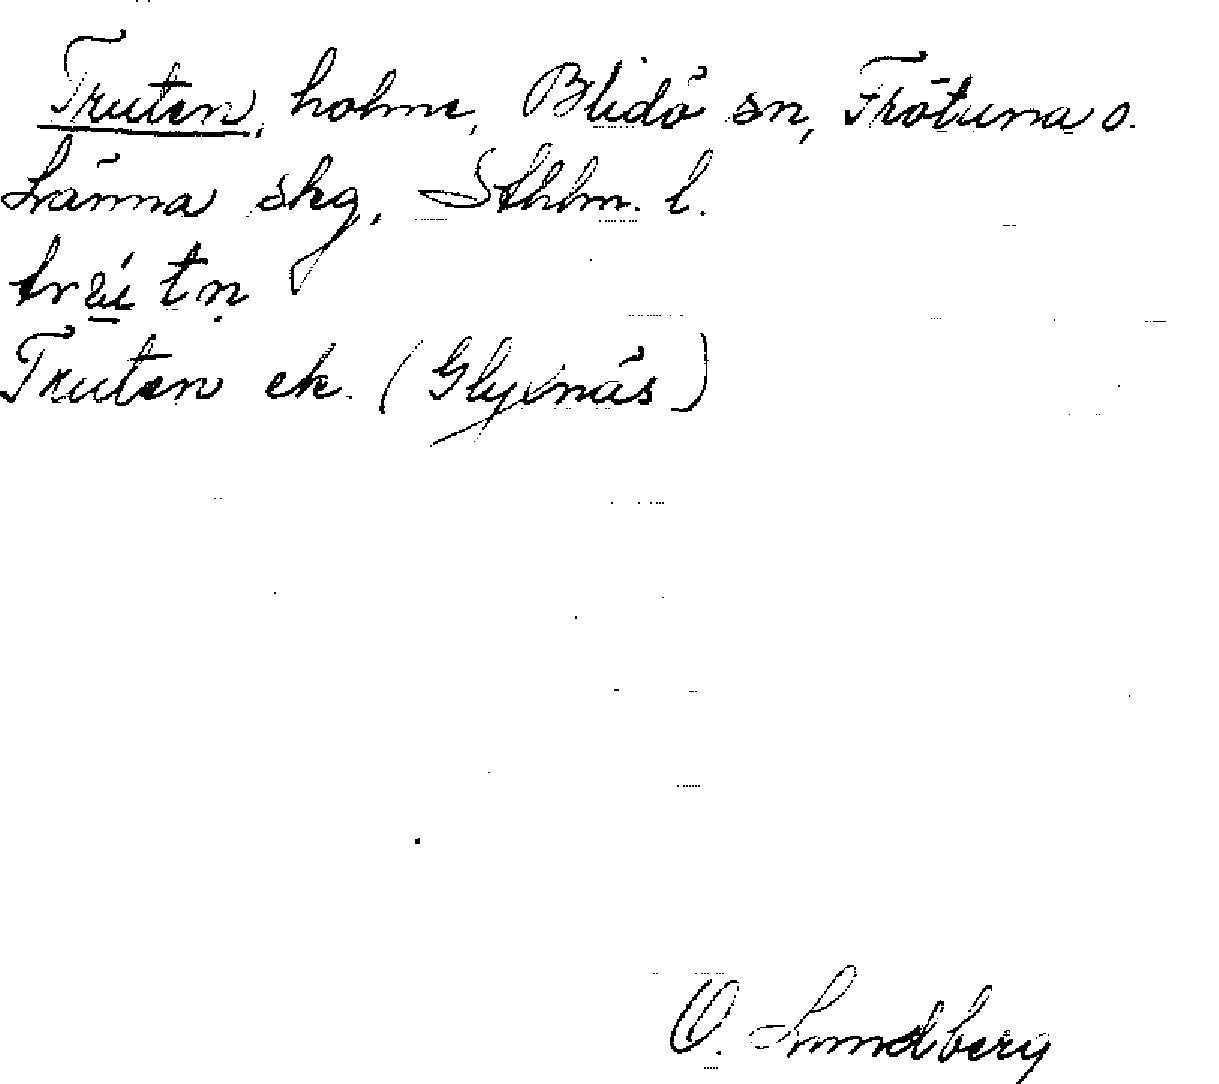 Truten, holme, Blidö sn, Frötuna o.
Länna skg, Sthlm. l.
Truten ek. (Glyxnäs)
O. Lundberg